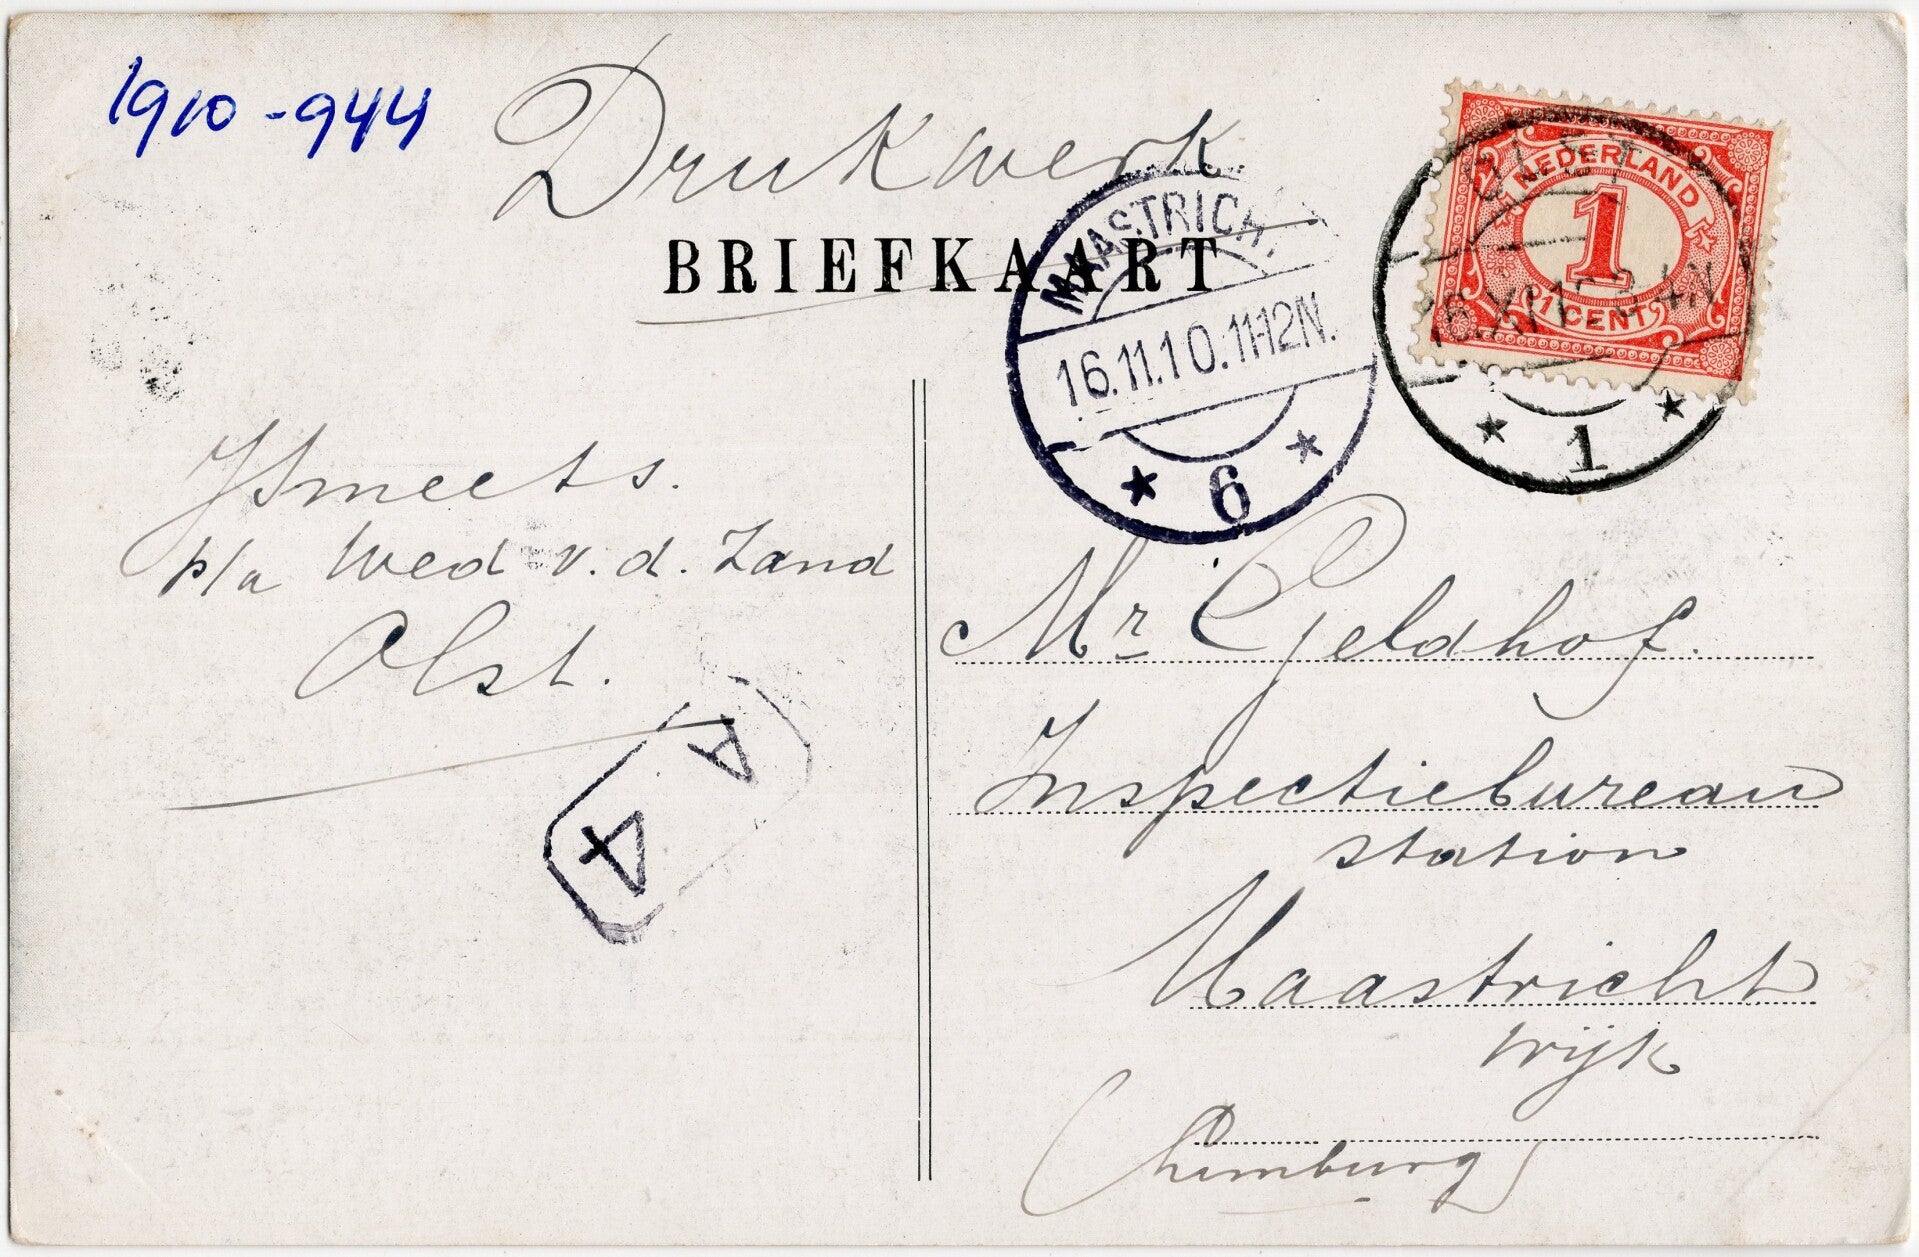 1910-944
Drukwerk
BRIEFKAART
MAASTRICHT
16.11.10.11-12N.
6
OLST
16.XI.10 3-4.N
1
NEDERLAND
1
1 CENT
JSmeets.
p/a Wed v. d. Zand
Olst.
A
4
Mr Geldhof.
Inspectiebureau
station
Maastricht
Wijk
(Limburg)